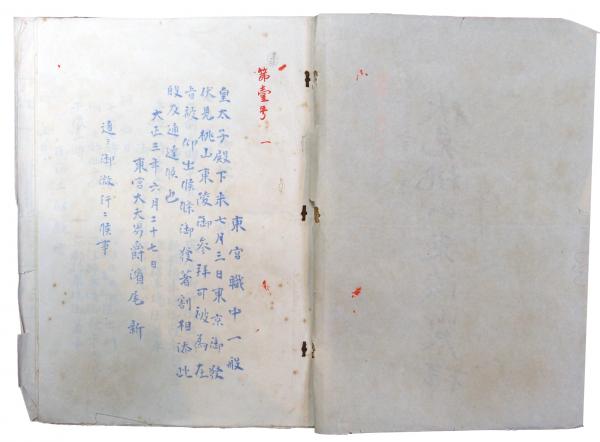 第壹号 一
東宮職中一般
皇太子殿下来七月三日東京御發
伏見桃山東陵御参拝可被為在
旨被 仰出候條御發著割相添此
段及通達候也
大正三年六月二十七日
東宮大夫男爵濱尾 新
追テ御微行ニ候事